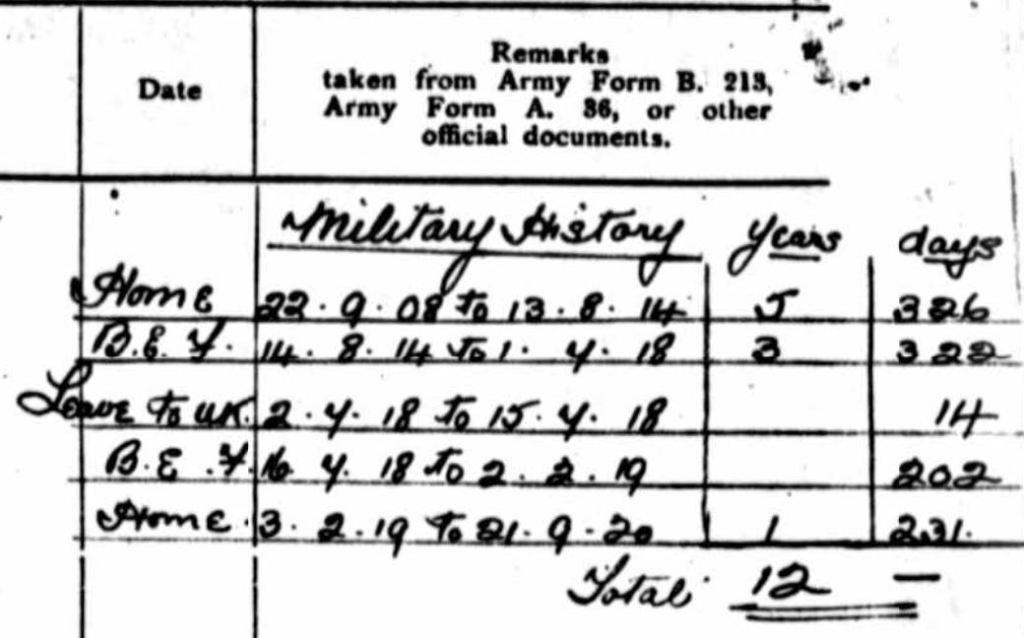 Date
Remarks
taken from Army Form B. 213,
Army Form A. 36, or other
official documents.
Military History years days
Home 22.9.08 to 13.8.14 5 326
B.E.F. 14.8.14 to 1.7.18 3 322
Leave to UK. 2.7.18 to 15.7.18 14
B.E.F. 16 7.18 to 2.2.19 202
Home. 3.2.19 to 21.9.20 1 231.
Total 12 —